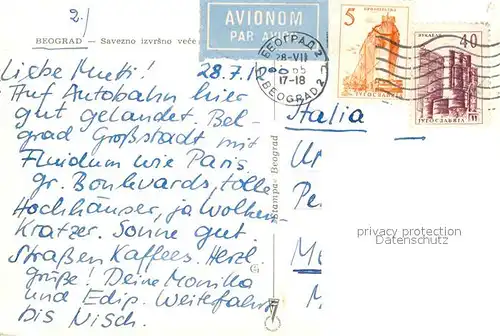 2.)
BEOGRAD — Savezno izvršno veće
AVIONOM
PAR AVION
БЕОГРАД 2
28-VII
17-18
BEOGRAD 2
5
ЈУГОСЛАВИЈА
40
ЈУГОСЛАВИЈА
Liebe Mutti! 28.7.
Auf Autobahn hier
gut gelandet. Bel-
grad Großstadt mit
Fluidum wie Paris
gr. Boulevards, tolle
Hochhäuser, ja Wolken-
Kratzer. Sonne gut
Straßen Kaffees. Herzl.
grüße! Deine Monika
und Edip. Weiterfahrt
bis Nisch.
»Stampa« Beograd
Italia
privacy masking
Datenschutz